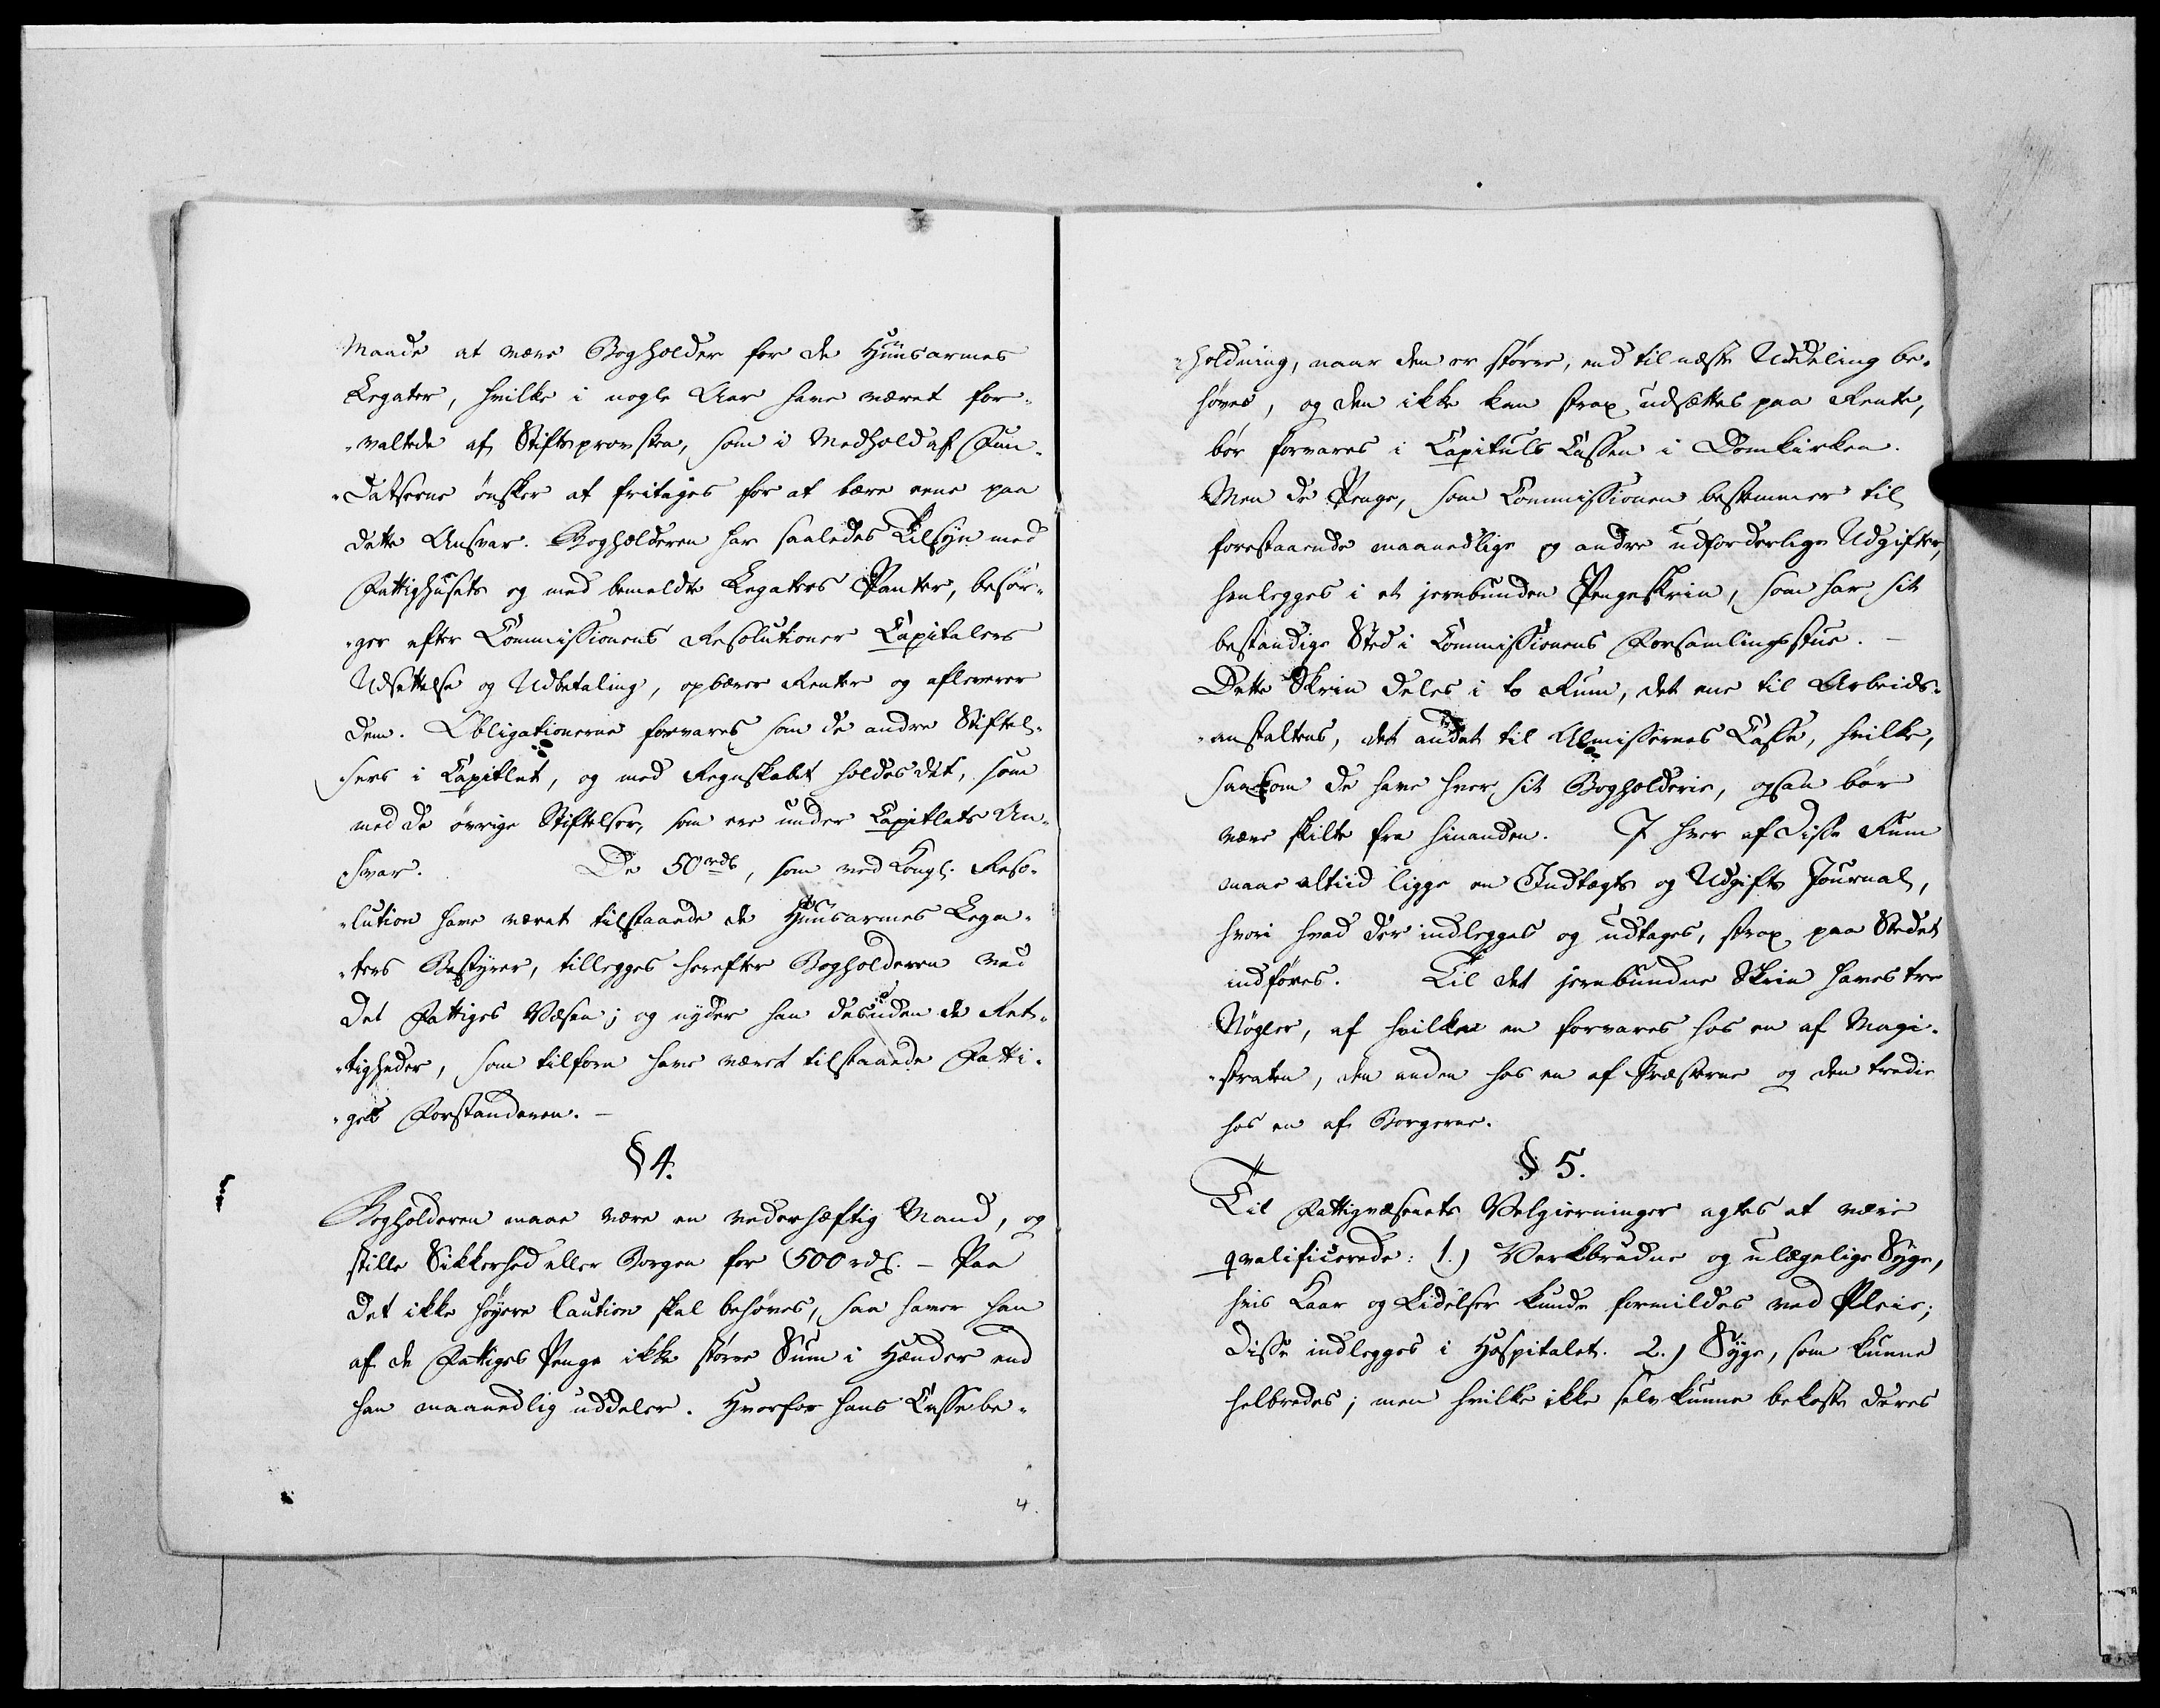 Maade at være Bogholder for de Huusarmes
Legater, hvilke i nogle Aar have været for-
-valtede af Stiftsprovsten, som i Medhold af Fun-
-datserne ønsker at fritages for at bære ene paa
dette Ansvar. Bogholderen har saaledes Tilsyn med
Fattighusets og med bemeldte Legaters Panter, besør-
-ger efter Commissionens Resolutioner Capitalers
Udsettelse og Udbetaling, opbærer Renter og afleverer
dem. Obligationerne forvares som de andre Stiftel-
sers i Capitlet, og med Regnskabet holdes det, som
med de øvrige Stiftelser, som ere under Capitlets An-
svar. De 50 rdl, som ved Kongl. Reso-
-lution have været tilstaaede de Huusarmes Lega-
-ters Bestyrer, tillegges herefter Bogholderen ved
det Fattiges Væsen; og nyder han desuden de Ret-
-tigheder, som tilforn have været tilstaaede Fatti-
-ges Forstanderen. -
§ 4.
Bogholderen maae være en vederhæftig Mand, og
stille Sikkerhed eller Borgen for 500 rdl. - Paa
det ikke høyere Caution skal behøves, saa haver han
af de Fattiges Penge ikke større Sum i Hænder end
han maanedlig uddeler. Hvorfor hans Cassebe-
4.
-holdning, naar den er større, end til næste Uddeling be-
høves, og den ikke kan strax udsættes paa Rente,
bør forvares i Capituls Cassen i Domkirken.
Men de Penge, som Commissionen bestemmer til
forestaaende maanedlige og andre udforderlige Udgifter,
henlegges i et jernbunden Pengeskrin, som har sit
bestandige Sted i Commissionens Forsamlingsstue. -
Dette Skrin deles i to Rum, det ene til Arbeids-
-anstaltens, det andet til Almissernes Casse, hvilke,
saasom de have hver sit Bogholderie, ogsaa bør
være skilte fra hinanden. I hver af disse Rum
maae altiid ligge en Indtægts og Udgifts Journal,
hvori hvad der indlegges og udtages, strax paa Stedet
indføres. Til det jernbundne Skrin haves tre
Nøgler, af hvilke en forvares hos en af Magi-
-straten, den anden hos en af Præsterne og den tredie
hos en af Borgerne.
§ 5.
Til Fattigvæsenets Velgierninger agtes at være
qvalificerede: 1.) Værkbrudne og ulægelige Syge,
hvis Kaar og Lidelser kunde formildes ved Pleie;
disse indlegges i Hospitalet. 2.) Syge, som kunne
helbredes; men hvilke ikke selv kunne bekoste deres